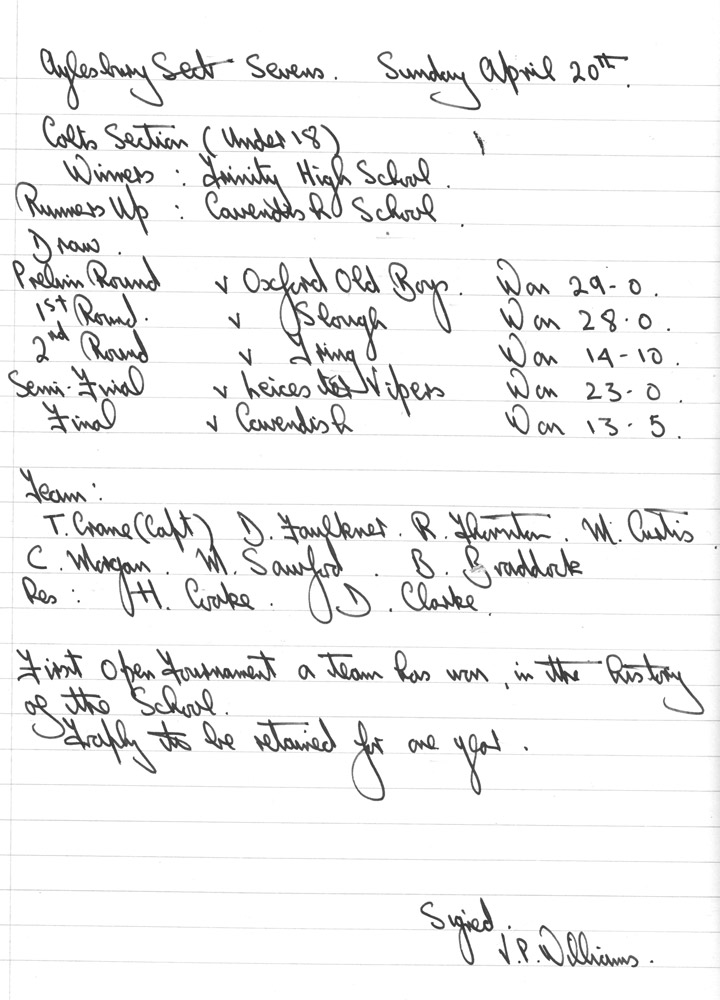 Aylesbury Sect Sevens. Sunday April 20th.
Colts Section (Under 18)
Winners : Trinity High School.
Runners Up : Cavendish School.
Draw.
Prelim Round v Oxford Old Boys. Won 29-0.
1st Round. v Slough Won 28-0.
2nd Round v Tring Won 14-10.
Semi-Final v Leicester Vipers Won 23-0.
Final v Cavendish Won 13-5.
Team:
T. Crane (Capt) D. Faulkner. R. Thornton. M. Curtis.
C. Morgan. M. Sawford. B. Braddock
Res: H. Coake. D. Clarke.
First Open Tournament a team has won, in the history
of the School.
Trophy to be retained for one year.
Signed.
J.P. Williams.